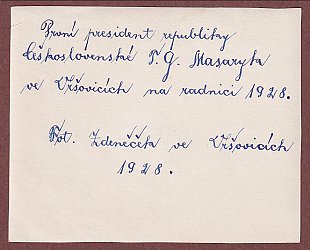 První president republiky
Československé T. G. Masaryk
ve Vršovicích na radnici 1928.
Fot. Zdeněčka ve Vršovicích
1928.